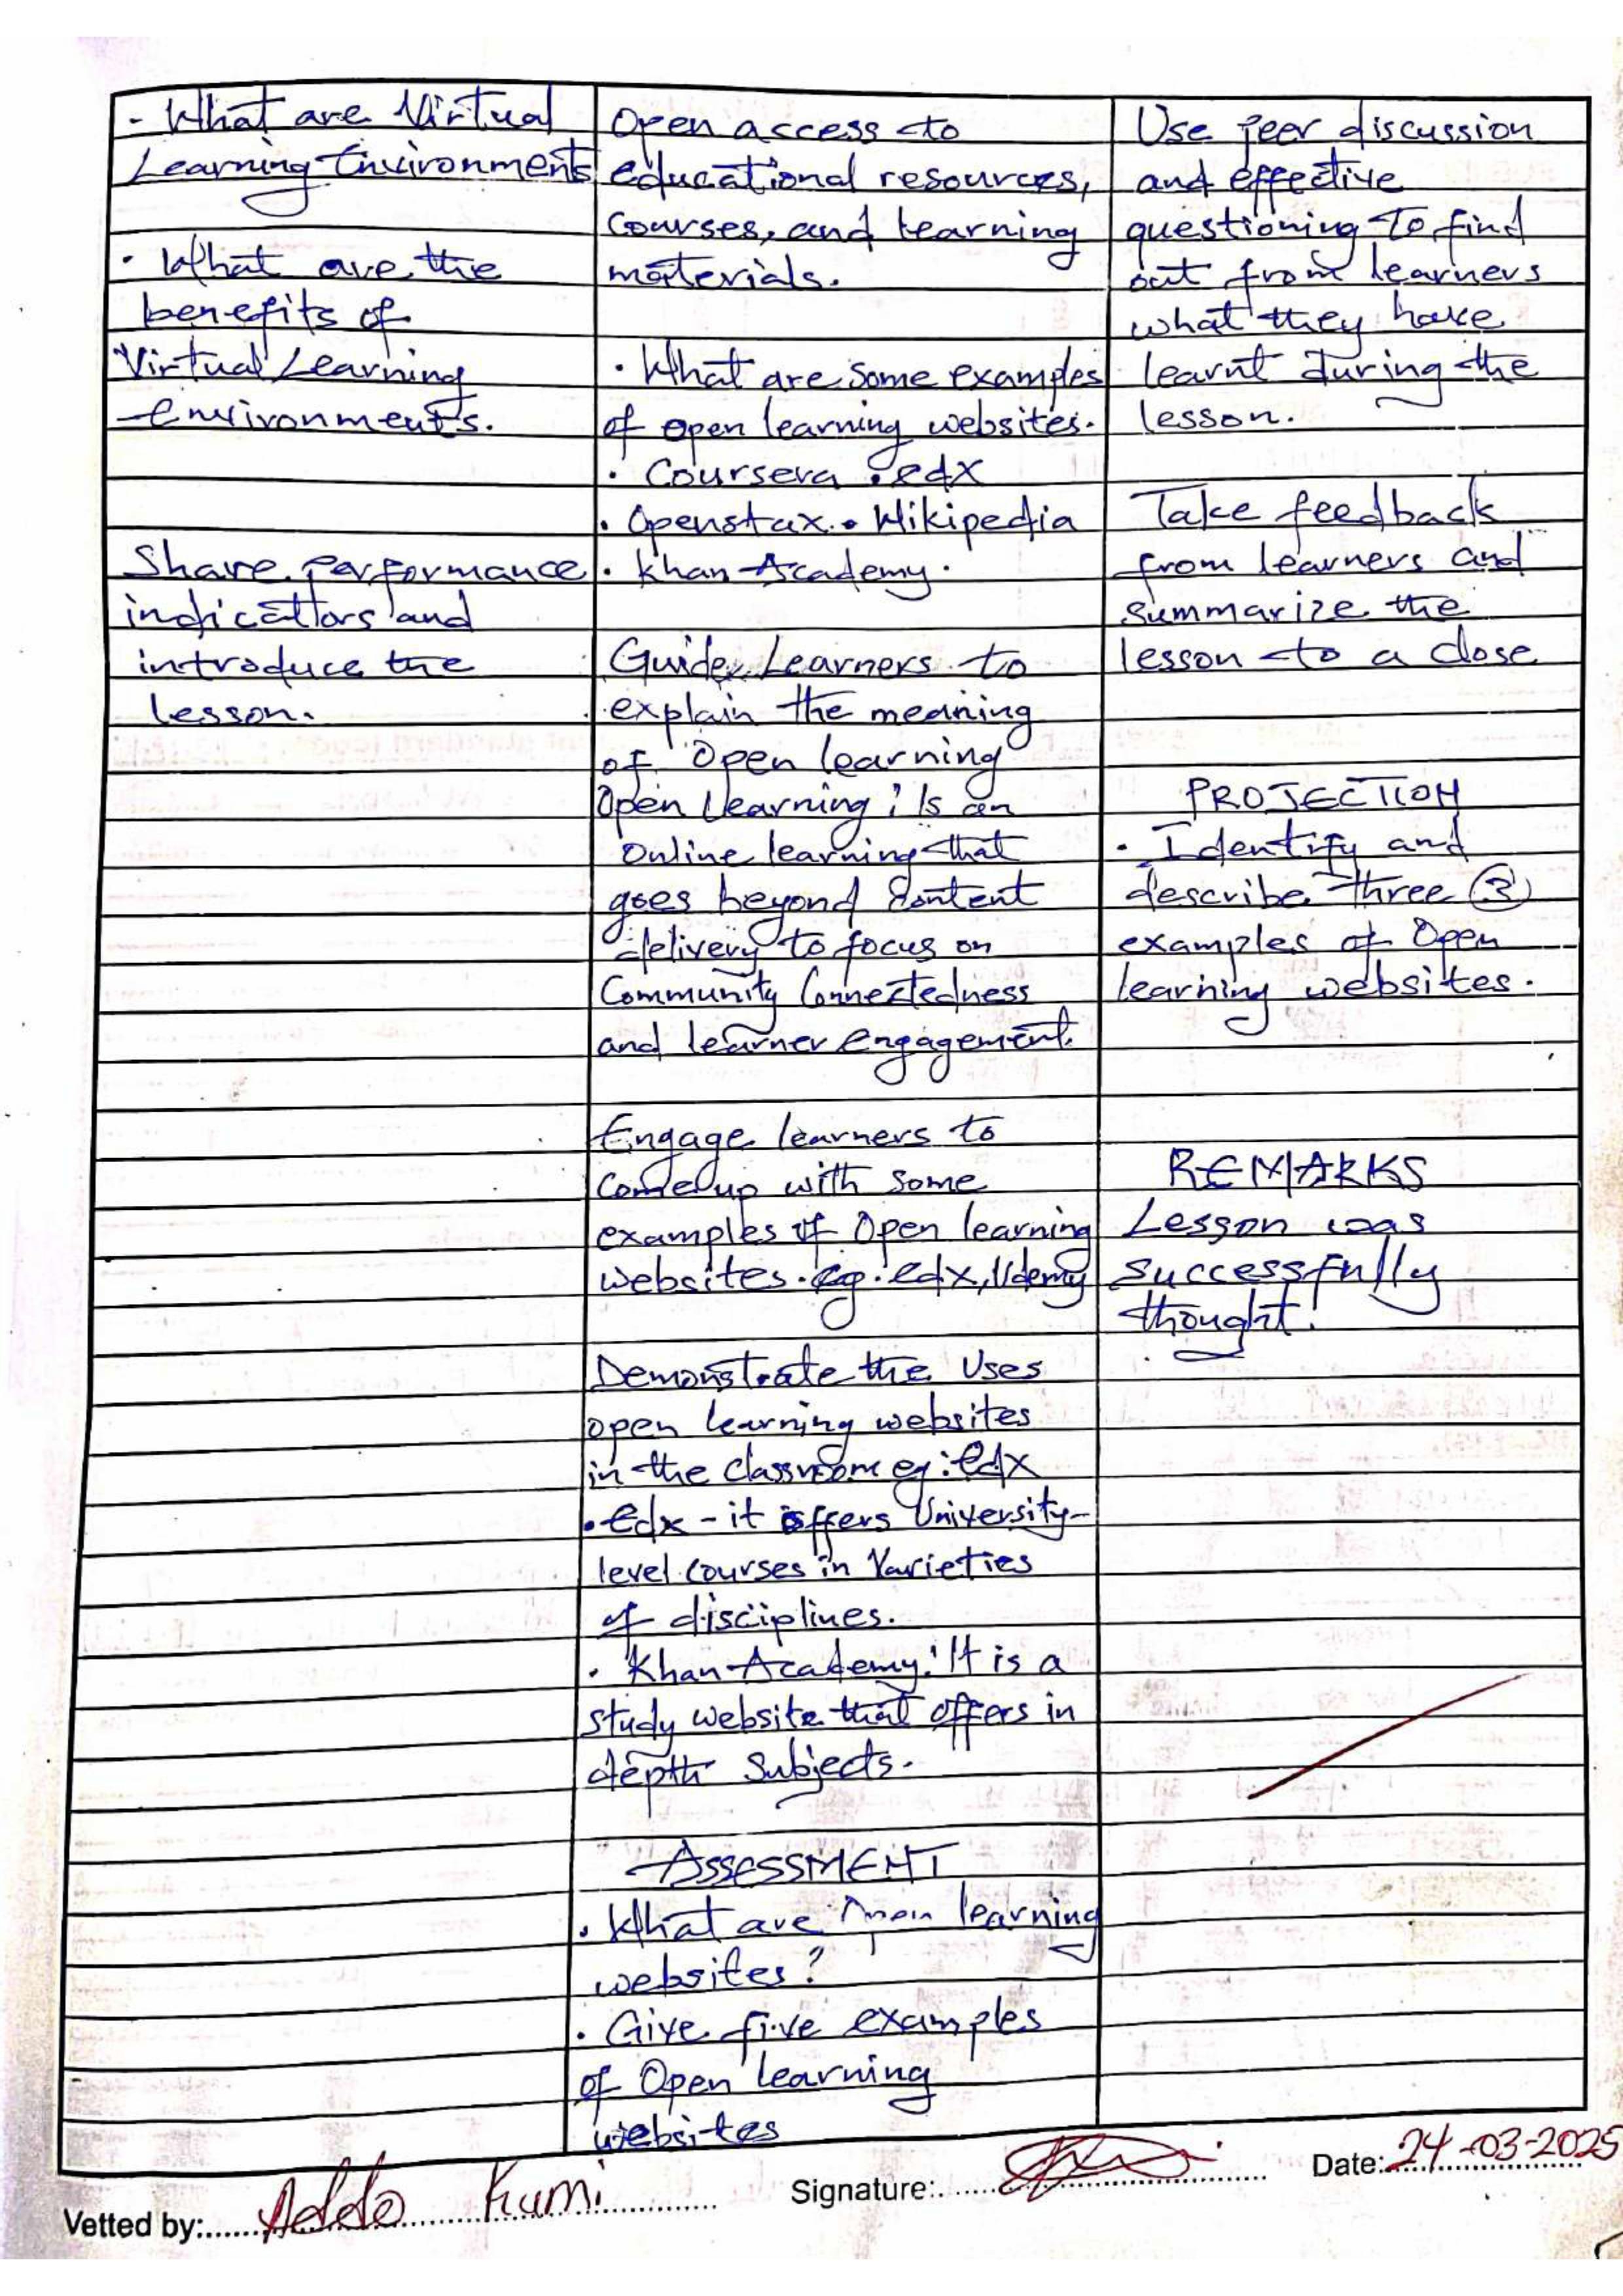 - What are Virtual
Learning Environments
• What are the
benefits of
Virtual Learning
environments.
Share performance
indicattors and
introduce the
lesson.
Open access to
educational resources,
courses, and learning
materials.
• What are some examples
of open learning websites.
• Coursera • edx
• Openstax • Wikipedia
• Khan Academy.
Guide Learners to
explain the meaning
of Open learning
Open Learning: Is an
Online learning that
goes beyond Content
delivery to focus on
Community Connectedness
and learner engagement.
Engage learners to
Come up with some
examples of Open learning
websites. eg. edx, Udemy
Demonstrate the Uses
open learning websites
in the classroom eg: edx
• edx - it offers University-
level courses in Varieties
of disciplines.
• Khan Academy: It is a
study website that offers in
depth Subjects.
ASSESSMENT
• What are Open learning
websites?
• Give five examples
of Open learning
websites
Use peer discussion
and effective
questioning to find
out from learners
what they have
learnt during the
lesson.
Take feedback
from learners and
summarize the
lesson to a close
PROJECTION
• Identify and
describe three (3)
examples of Open
learning websites.
REMARKS
Lesson was
successfully
thought!
Vetted by: Addo Kumi Signature: Date: 24-03-2025